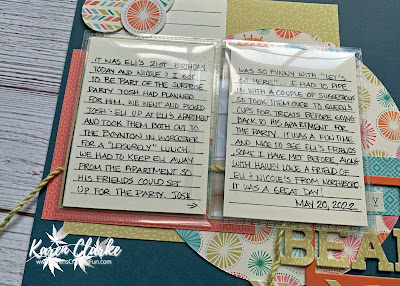 IT WAS ELI'S 21ST BIRTHDAY
TODAY AND NICOLE & I GOT
TO BE PART OF THE SURPRISE
PARTY JOSH HAD PLANNED
FOR HIM. WE WENT AND PICKED
JOSH & ELI UP AT ELI'S APARTMENT
AND TOOK THEM BOTH OUT TO
THE BOYNTON IN WORCESTER
FOR A "LEISURELY" LUNCH.
WE HAD TO KEEP ELI AWAY
FROM THE APARTMENT SO
HIS FRIENDS COULD SET
UP FOR THE PARTY. JOSH
→
WAS SO FUNNY WITH "LET'S
GO HERE". I HAD TO PIPE
IN WITH A COUPLE OF SUGGESTIONS
SO TOOK THEM OVER TO QUEEN'S
CUPS FOR TREATS BEFORE GOING
BACK TO HIS APARTMENT FOR
THE PARTY. IT WAS A FUN TIME
AND NICE TO SEE ELI'S FRIENDS
SOME I HAVE MET BEFORE ALONG
WITH HAILEY LOWE A FRIEND OF
ELI & NICOLE'S FROM NORTHBORO.
IT WAS A GREAT DAY!
MAY 20, 2022
Y
BEA
Karen Clarke